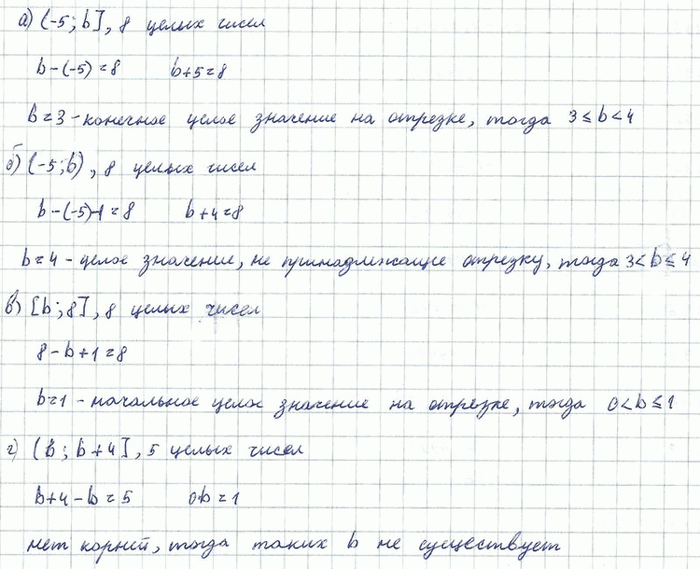 а) (-5; b], 8 целых чисел
b-(-5)=8 b+5=8
b=3-конечное целое значение на отрезке, тогда 3≤b<4
б) (-5; b), 8 целых чисел
b-(-5)-1=8 b+4=8
b=4-целое значение, не принадлежащие отрезку, тогда 3<b≤4
в) [b; 8], 8 целых чисел
8-b+1=8
b=1-начальное целое значение на отрезке, тогда 0<b≤1
г) (b; b+4], 5 целых чисел
b+4-b=5 0b=1
нет корний, тогда таких b не существует